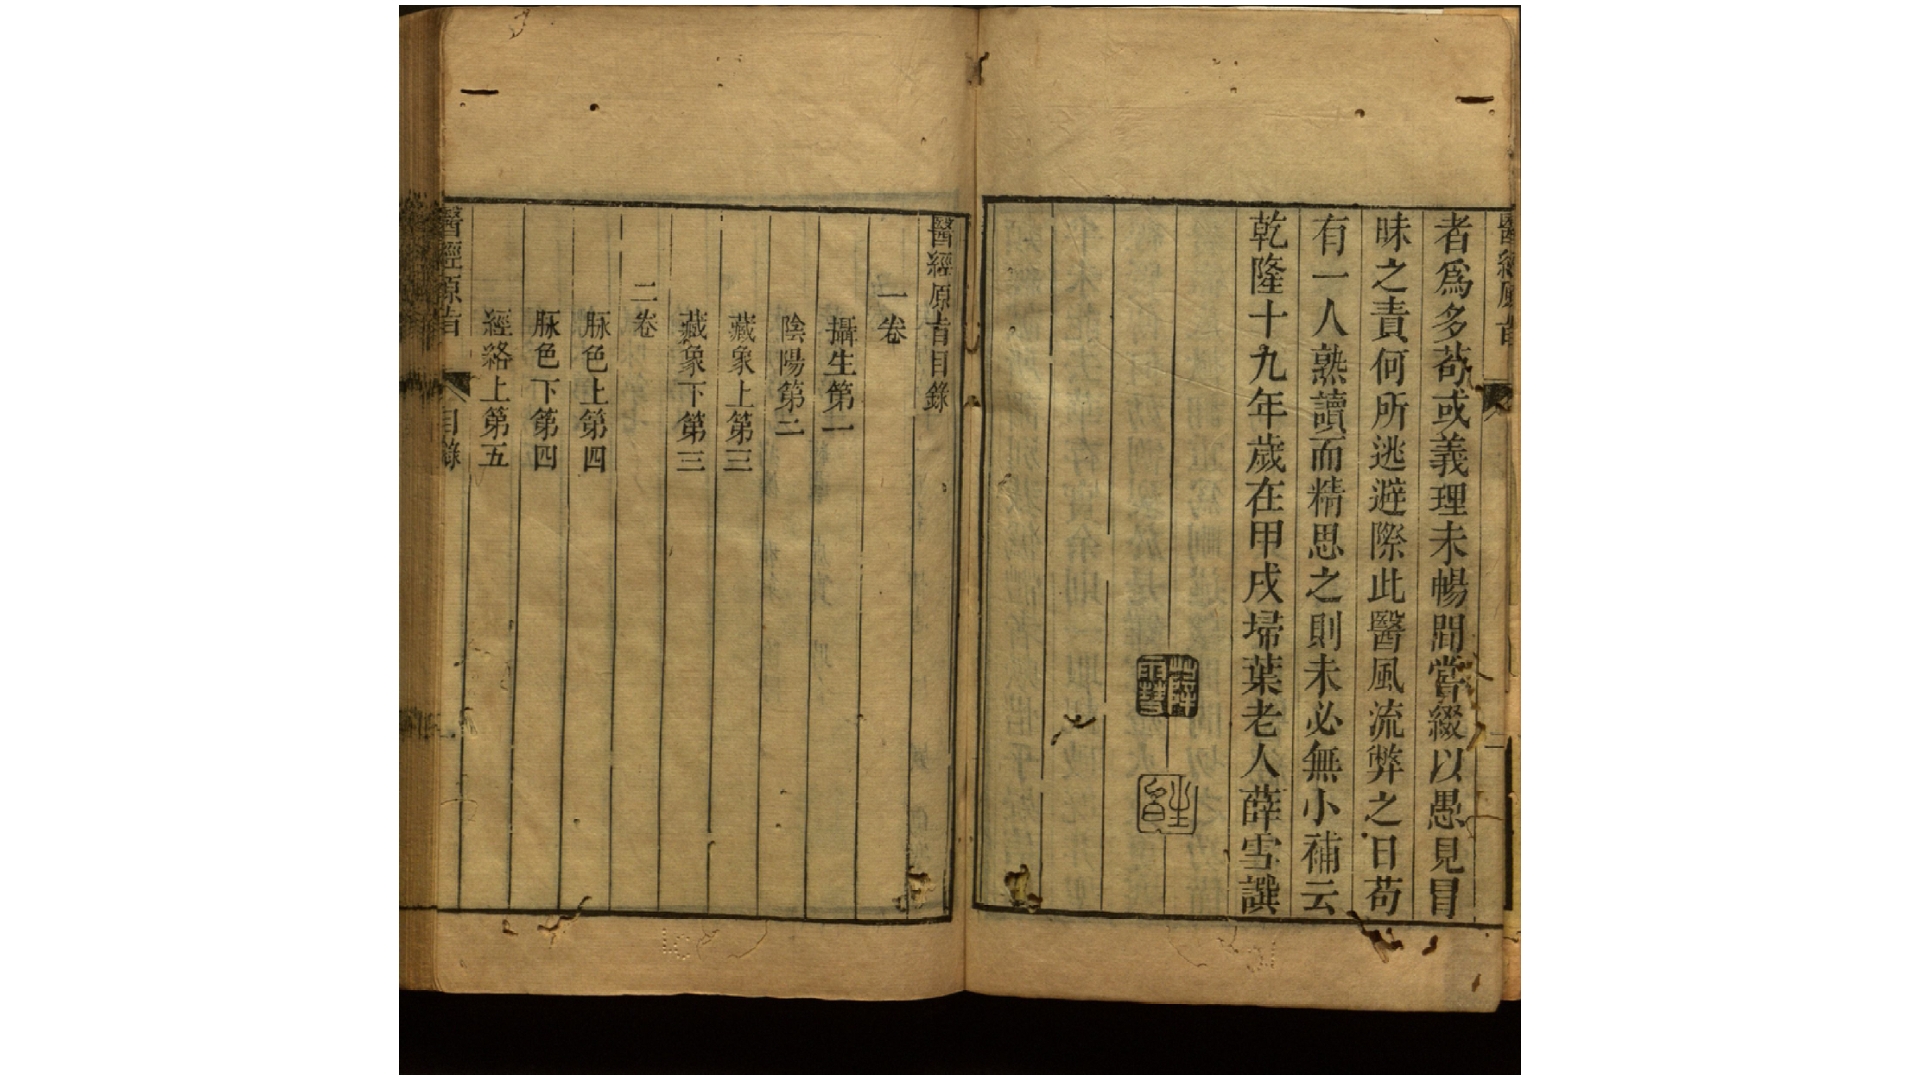 醫經原旨
者爲多苟或義理未暢間嘗綴以愚見冒
昧之責何所逃避際此醫風流弊之日苟
有一人熟讀而精思之則未必無小補云
乾隆十九年歲在甲戌埽葉老人薛雪譔
醫經原旨目錄
一卷
攝生第一
陰陽第二
藏象上第三
藏象下第三
二卷
脉色上第四
脉色下第四
經絡上第五
醫經原旨
目錄